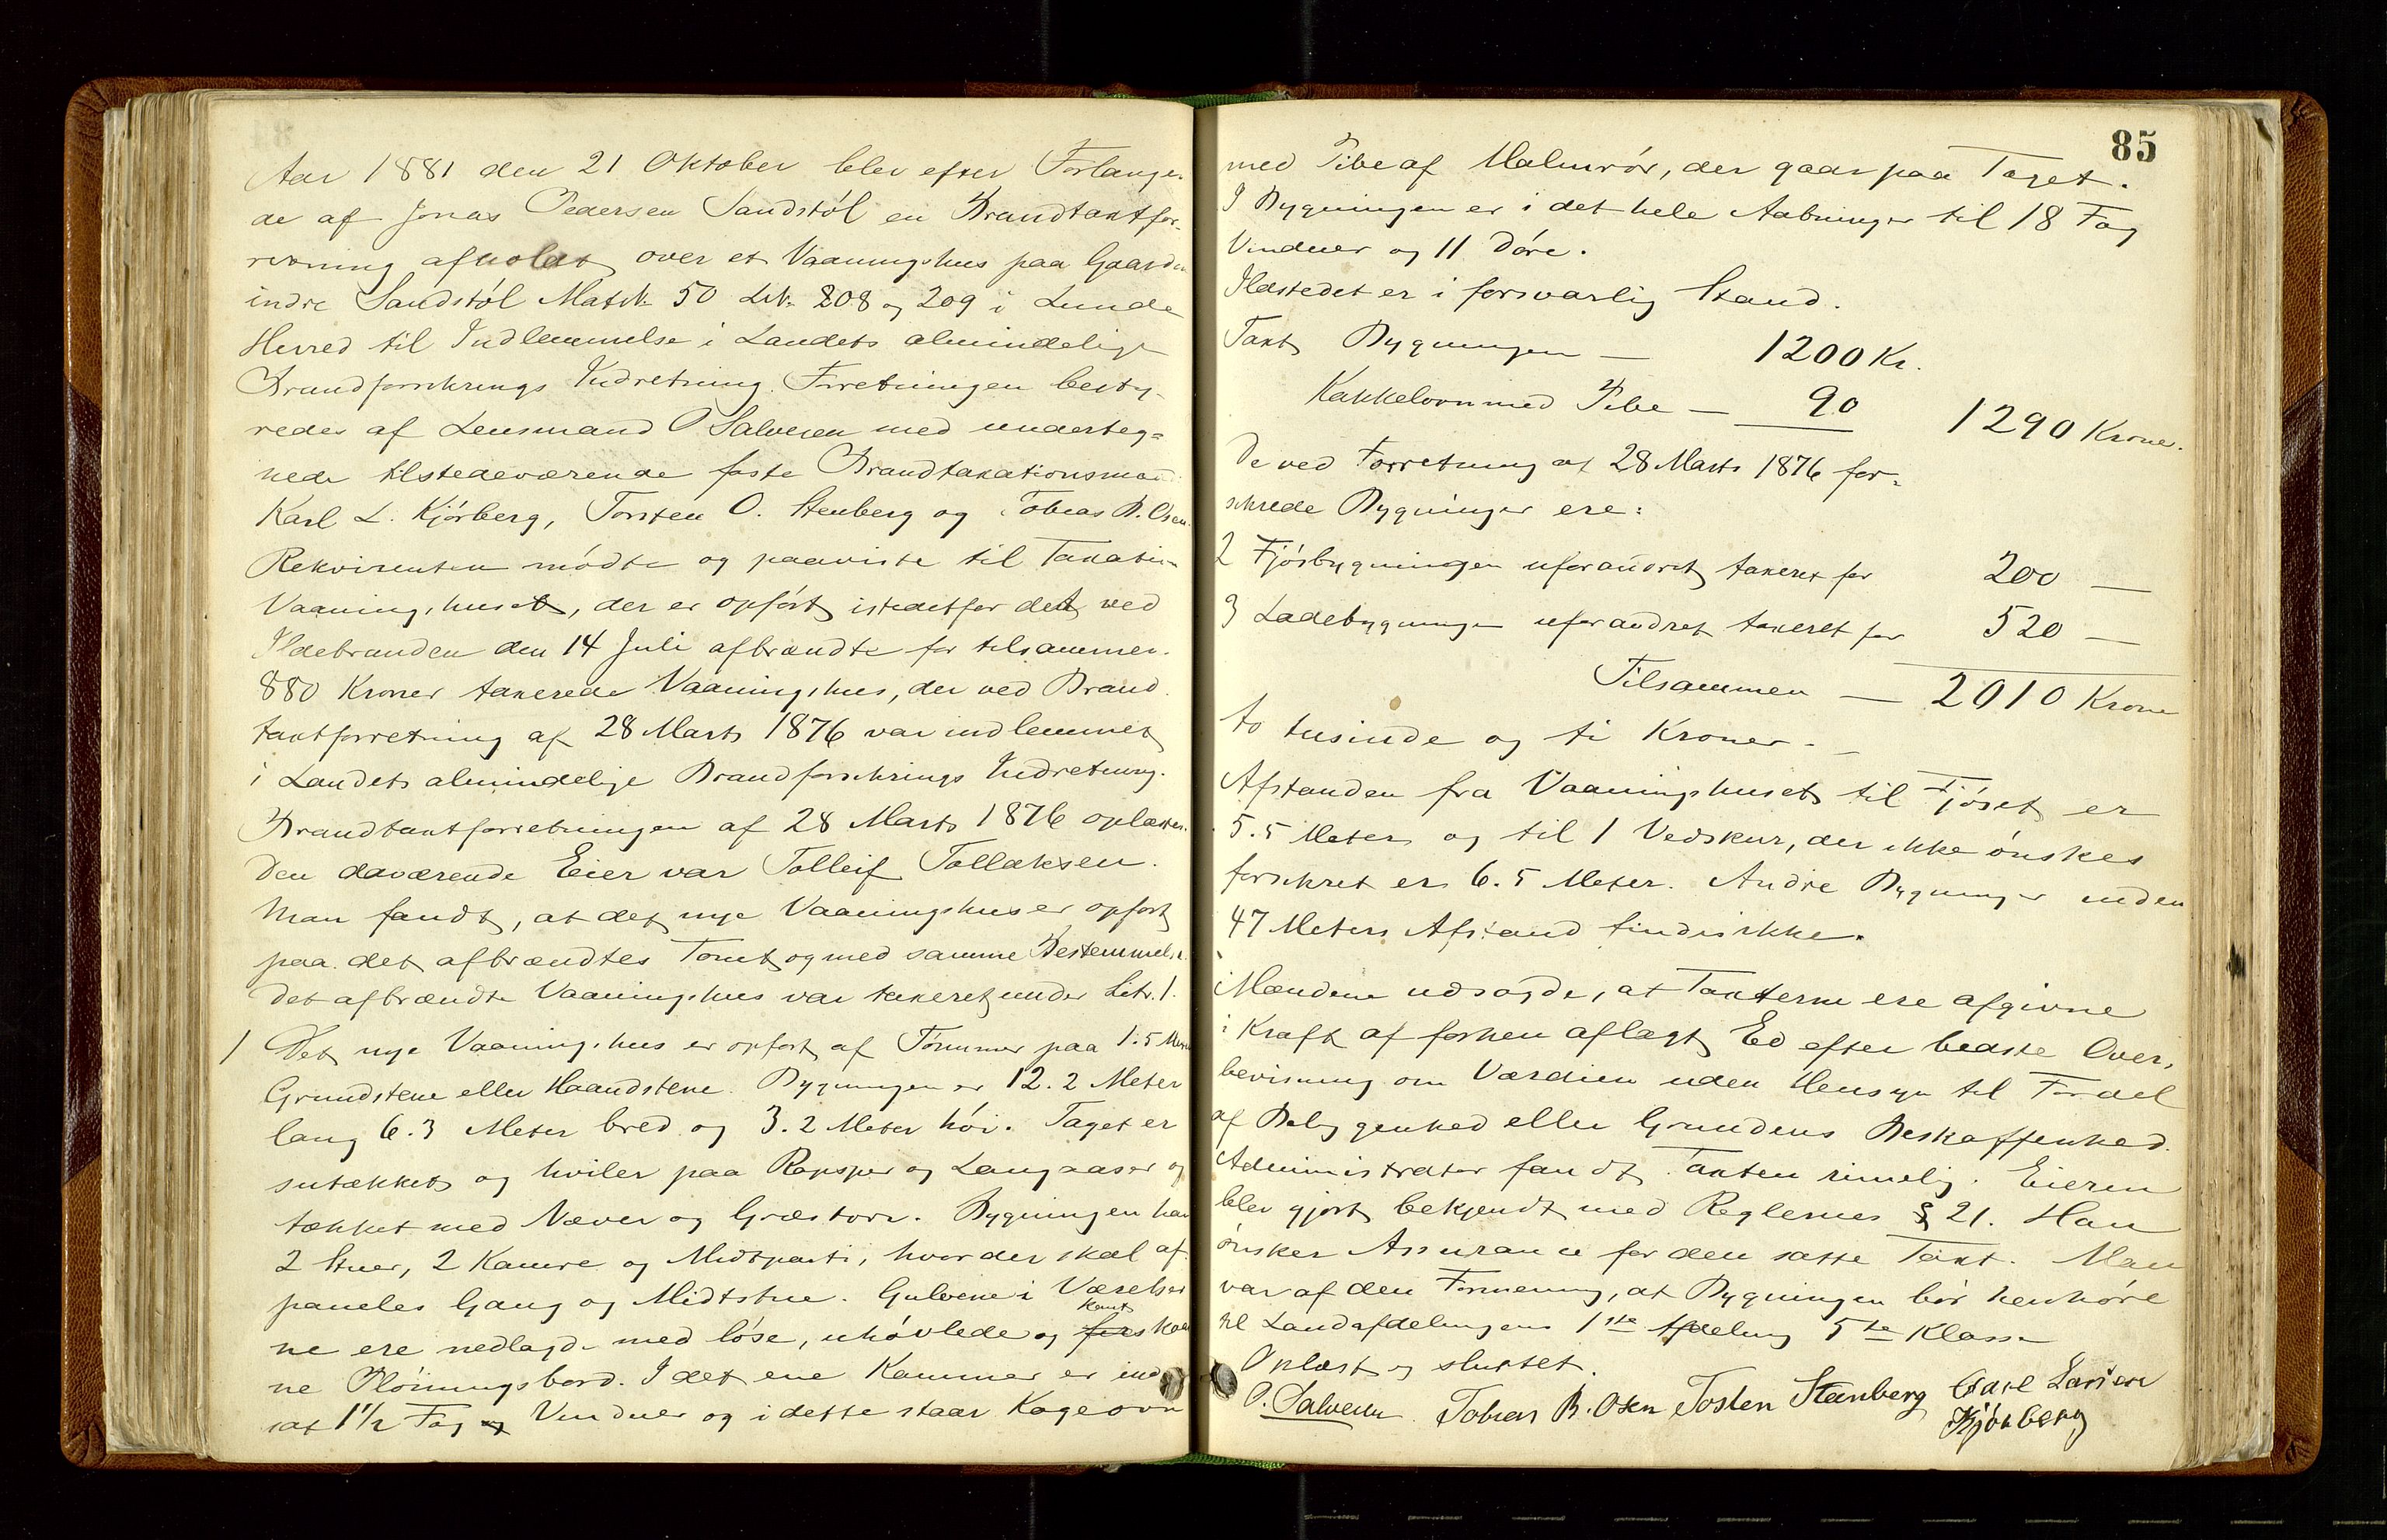 Aar 1881 den 21 Oktober blev efter Forlangen-
de af Jonas Pedersen Sandstöl en Brandtaxtfor-
retning afholdt over et Vaaningshus paa Gaarden
indre Sandstöl Matrk 50 Lrk. 208 og 209 i Lunde
Herred til Indlemmelse i Landets almindelige
Brandforsikrings Indretning. Forretningen besty-
redes af Lensmand O Salvesen med underteg-
nede tilstedeværende faste Brandtaxationsmænd
Karl L. Kjörberg, Torsten O. Stenberg og Tobias B. Osen.
Rekvirenten mödte og paaviste til Taxation
Vaaningshuset, der er opfört istedetfor det ved
Ildebranden den 14 Juli afbrændte for tilsammen
880 Kroner taxerede Vaaningshus, der ved Brand-
taxtforretning af 28 Marts 1876 var indlemmet
i Landets almindelige Brandforsikrings Indretning.
Brandtaxtforretningen af 28 Marts 1876 oplæstes.
Den daværende Eier var Tolleif Tollaksen.
Man fandt, at det nye Vaaningshus er opfört
paa det afbrændtes Tomt og med samme Bestemmelse.
Det afbrændte Vaaningshus var taxeret under Litr. 1.
1 Det nye Vaaningshus er opfört af Tömmer paa 1.5 Meter
Grundstene eller Haandstene. Bygningen er 12.2 Meter
lang 6.3 Meter bred og 3.2 Meter höi. Taget er
sutækket og hviler paa Ropsper og Langaaser og
tækket med Næver og Græstorv. Bygningen har
2 Stuer, 2 Kamre og Midtparti, hvor der skal af-
paneles Gang og Midtstue. Gulvene i Værelser
ne ere nedlagde med löse, uhövlede og kant skaa
ne Plöiningsbord. I det ene Kammer er ind
sat 1 1/2 Fag Vinduer og i dette staar Kogeovn
85
med Pibe af Malmrör, der gaar paa Taget.
I Bygningen er i det hele Aabninger til 18 Fag
Vinduer og 11 Döre.
Ildstedet er i forsvarlig Stand.
Taxt Bygningen — 1200 Kr.
Kakkelovn med Pibe — 90 1290 Kroner.
De ved Forretning af 28 Marts 1876 for-
sikrede Bygninger ere:
2 Fjösbygningen uforandret taxeret for 200 —
3 Ladebygningen uforandret taxeret for 520 —
Tilsammen — 2010 Kroner
to tusinde og ti Kroner. —
Afstanden fra Vaaningshuset til Fjöset er
5.5 Meter og til 1 Vedskur, der ikke önskes
forsikret er 6.5 Meter. Andre Bygninger inden
47 Meters Afstand findes ikke.
Mændene udsagde, at Taxterne ere afgivne
i Kraft af forhen aflagt Ed efter bedste Over-
bevisning om Værdien uden Hensyn til Fordel
af Beliggenhed eller Grundens Beskaffenhed.
Administrator fandt Taxten rimelig. Eieren
blev gjort bekjendt med Reglernes § 21. Han
önsker Assurance for den satte Taxt. Man
var af den Formening, at Bygningen bör henhöre
til Landafdelingens 1ste Afdeling 5te Klasse
Oplæst og sluttet.
O. Salvesen Tobias B. Osen Tosten Stenberg Carl Larsen
Kjörberg